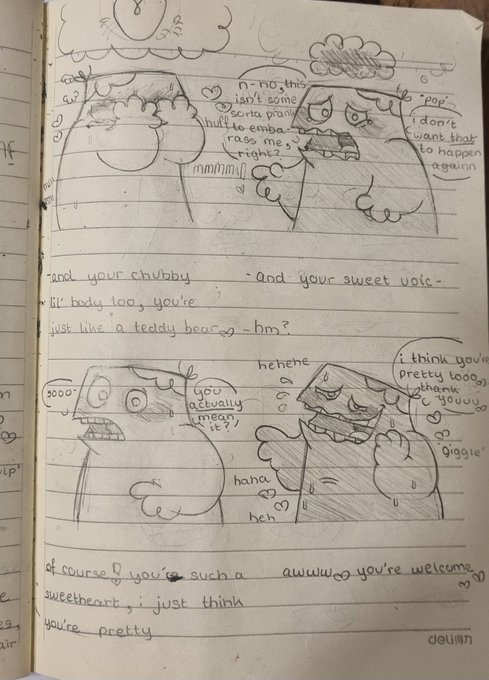 n-no, this
isn't some
sorta prank
to emba-
rass me,
right?
huff
mmmms
*pop*
i don't
want that
to happen
againn
-and your chubby
lil' body too, you're
just like a teddy bear
-and your sweet voic-
-hm?
sooo-
you
actually
mean
it?
hehehe
i think you're
pretty tooo
thank
youuuu
*giggle*
haha
heh
of course! you're such a
sweetheart, i just think
you're pretty
awww you're welcome